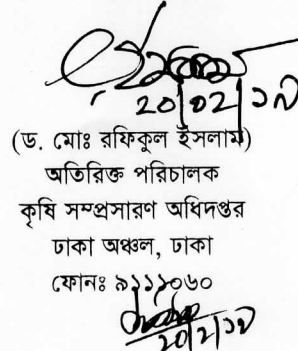 ২০/০২/১৯
(ড. মোঃ রফিকুল ইসলাম)
অতিরিক্ত পরিচালক
কৃষি সম্প্রসারণ অধিদপ্তর
ঢাকা অঞ্চল, ঢাকা
ফোনঃ ৯১১১০৬০